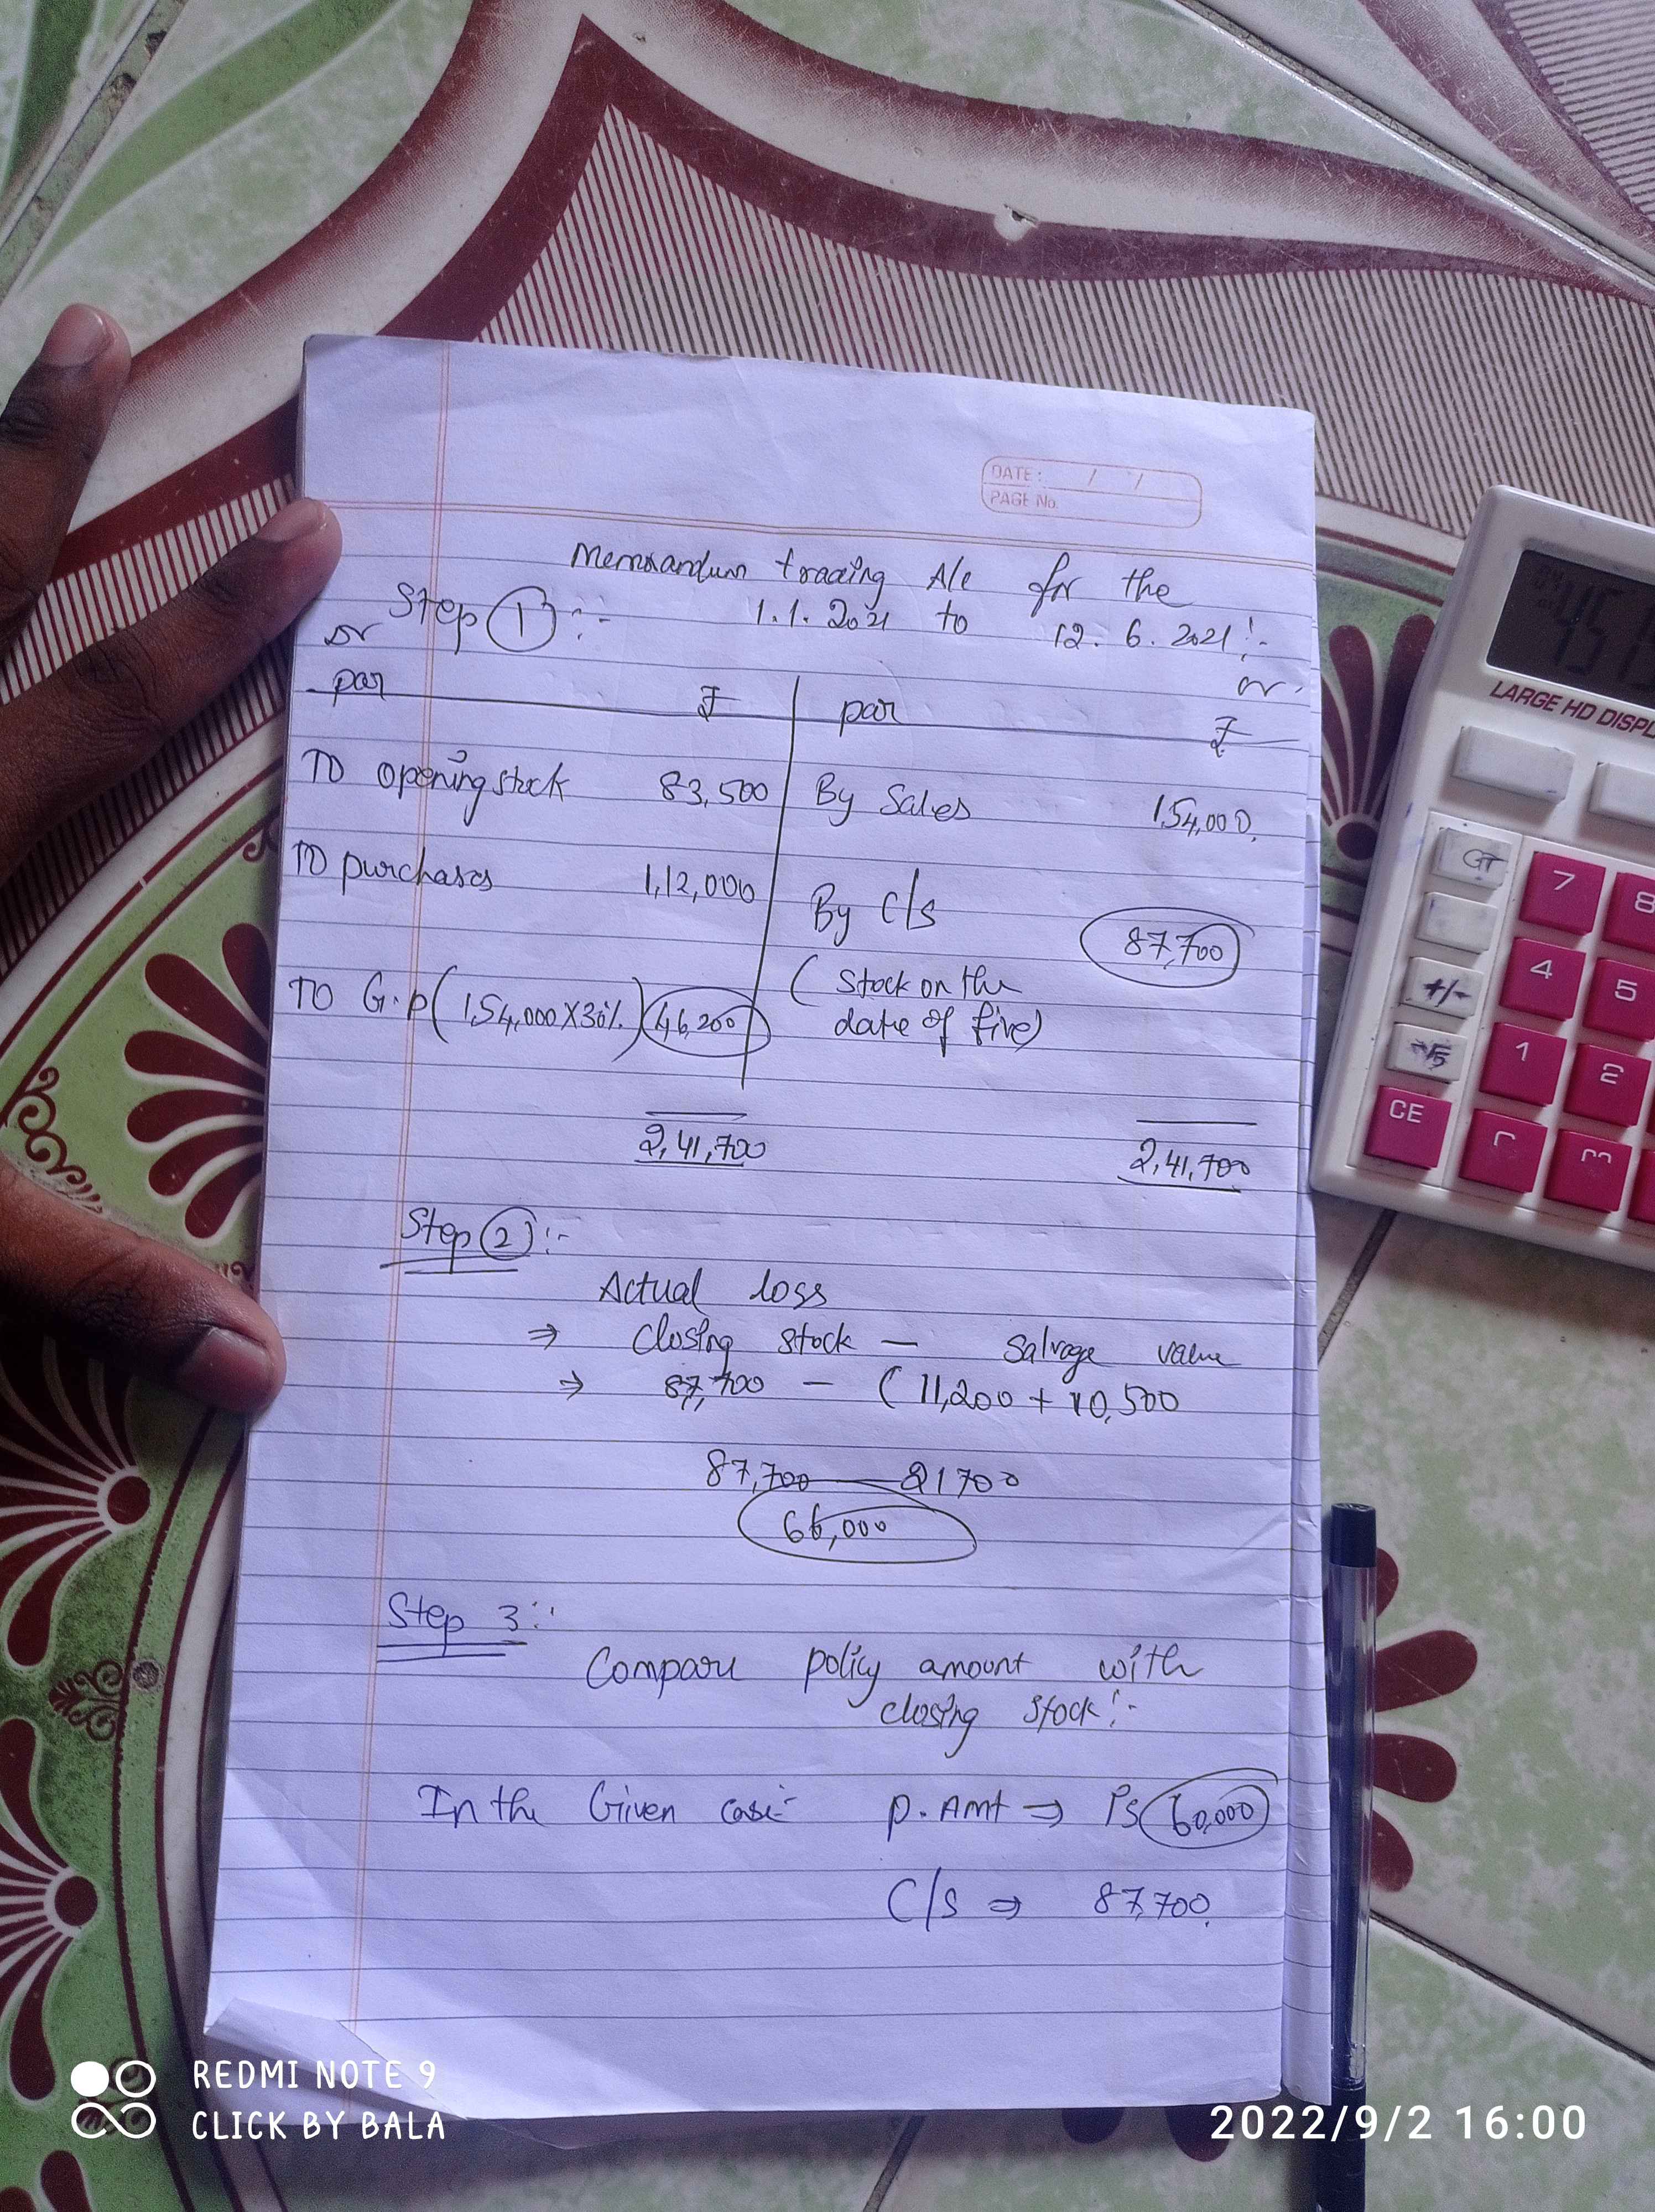 DATE: / /
PAGE No.
Memorandum trading A/c for the
Step 1 :- 1.1.2021 to 12.6.2021:-
Dr cr
par ₹ par ₹
TO opening stock 83,500 By Sales 1,54,000
TO purchases 1,12,000 By C/s 87,700
TO G.P (1,54,000 X 30%) 46,200 (Stock on the
date of fire)
2,41,700 2,41,700
Step 2 :-
Actual loss
⇒ Closing stock — Salvage value
⇒ 87,700 — (11,200 + 10,500
87,700 — 21700
66,000
Step 3 :-
Compare policy amount with
closing stock:-
In the Given case:- P.Amt ⇒ Rs 60,000
C/s ⇒ 87,700
LARGE HD DISPL
GT
7 8
+/-
4 5
1 2
CE
REDMI NOTE 9
CLICK BY BALA
2022/9/2 16:00